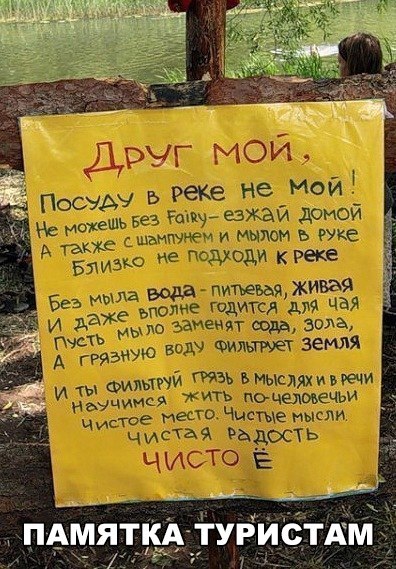 Друг мой,
Посуду в реке не мой!
Не можешь без Fairy- езжай домой
А также с шампунем и мылом в руке
Близко не подходи к реке
Без мыла вода - питьевая, живая
И даже вполне годится для чая
Пусть мыло заменят сода, зола,
А грязную воду фильтрует земля
И ты фильтруй грязь в мыслях и в речи
Научимся жить по-человечьи
Чистое место. Чистые мысли.
Чистая радость
ЧИСТО Ё
ПАМЯТКА ТУРИСТАМ